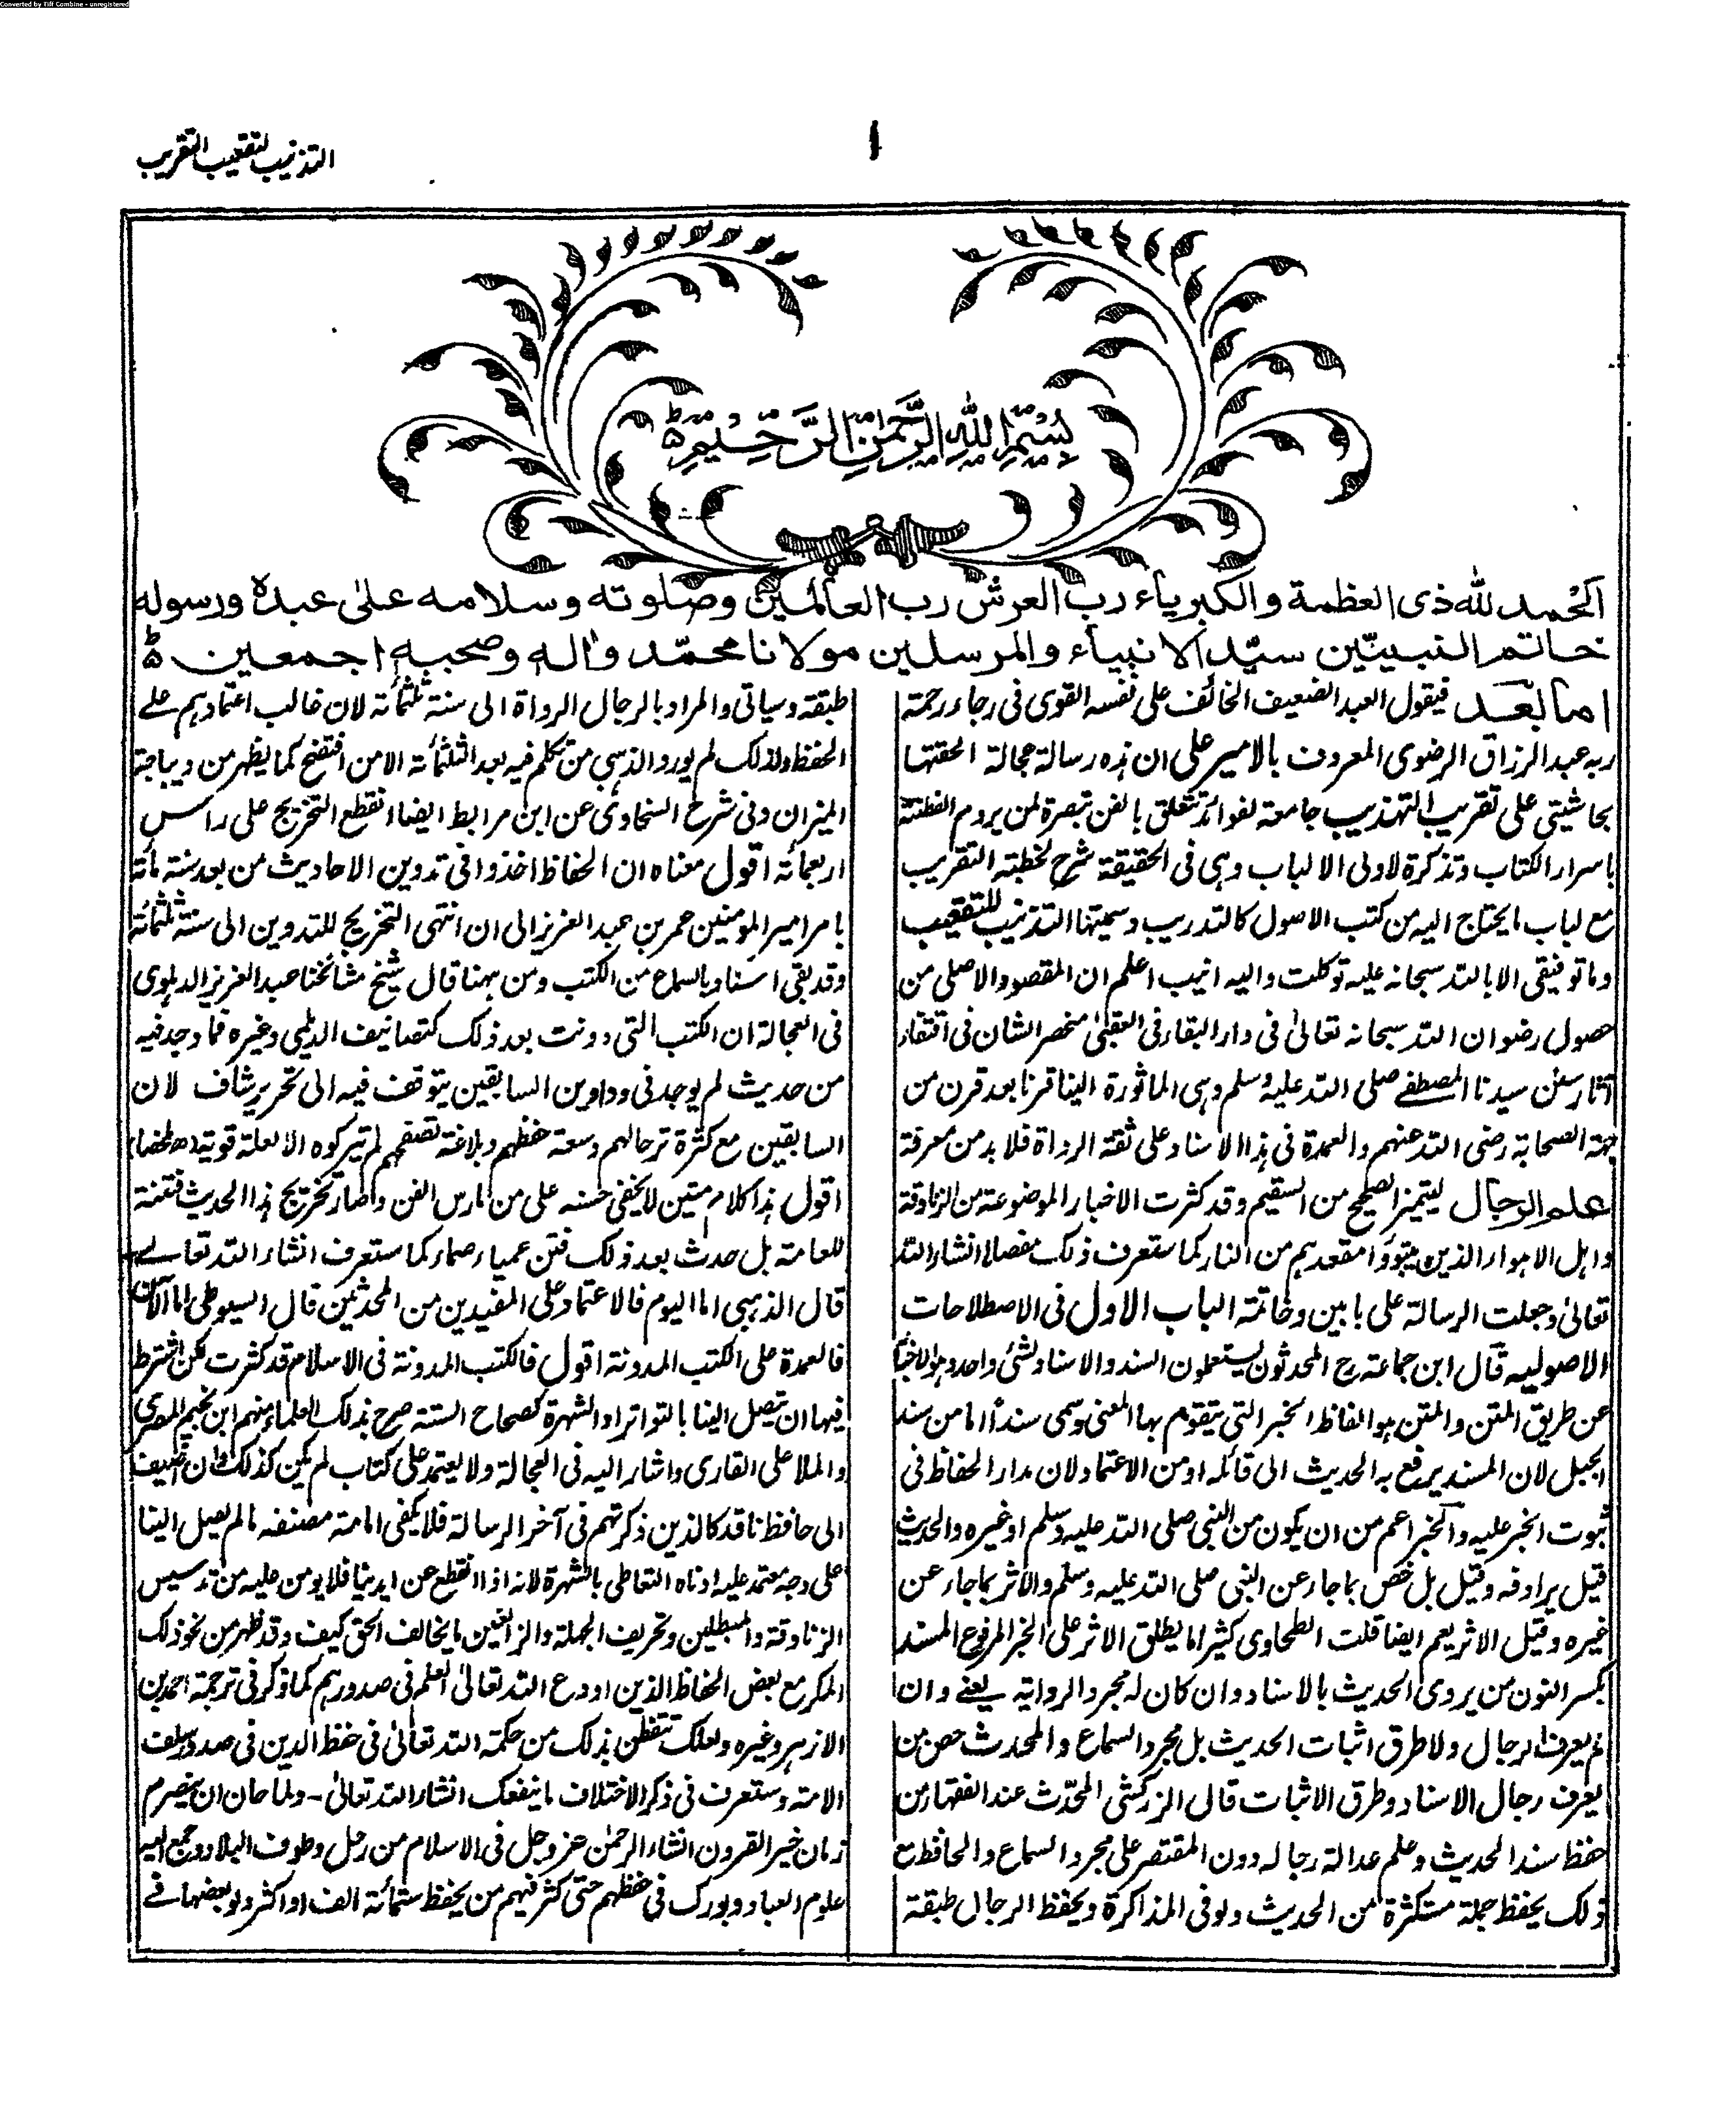 Converted by Tiff Combine - unregistered
التذنيب لتقعيب التقريب
١
بِسْمِ اللهِ الرَّحْمٰنِ الرَّحِيْمِ ط
اَلحْمد للّٰه ذى العظمة والكبرياء رب العرش رب العالمين وصلوته وسلامه علىٰ عبده ورسوله
خاتم النبيّين سيّد الانبياء والمرسلين مولانا محمّد واٰله وصحبه اجمعين ط
اما بعد فيقول العبد الضعيف الخائف على نفسه القوى فى رجاء رحمة
ربه عبد الرزاق الرضوى المعروف بالامير على ان هذه رسالة عجالة الحقتها
بحاشيتى على تقريب التهذيب جامعة لفوائد تتعلق بالفن تبصرة لمن يروم الفطنة
باسرار الكتاب وتذكرة لاولى الالباب وهى فى الحقيقة شرح لخطبة التقريب
مع لباب ما يحتاج اليه من كتب الاصول كالتدريب وسميتها التذنيب للتقعيب
وما توفيقى الا بالله سبحانه عليه توكلت واليه انيب اعلم ان المقصود الاصلى من
حصول رضوان الله سبحانه تعالىٰ فى دار البقاء فى العقبىٰ منحصر الشان فى اقتفاء
آثار سنن سيدنا المصطفے صلى الله عليه وسلم وهى الماثورة الينا قرنا بعد قرن من
جهة الصحابة رضى الله عنهم والعمدة فى هذا الاسناد على ثقة الرواة فلا بد من معرفة
علم الرجال ليتميز الصحيح من السقيم وقد كثرت الاخبار الموضوعة من الزنادقة
واهل الاهواء الذين يتبوؤا مقعدهم من النار كما ستعرف ذلك مفصلا انشاء الله
تعالىٰ وجعلت الرسالة على بابين وخاتمة الباب الاول فى الاصطلاحات
الاصوليه قال ابن جماعة رح المحدثون يستعملون السند والاسناد لشئ واحد وهو الاخبار
عن طريق المتن والمتن هو الفاظ الخبر التى يتقوم بها المعنى وسمى سنداً اما من سند
الجبل لان المسند يرفع به الحديث الى قائله او من الاعتماد لان مدار الحفاظ فى
ثبوت الخبر عليه والخبر اعم من ان يكون من النبى صلى الله عليه وسلم او غيره والحديث
قيل يرادفه وقيل بل خص بما جاء عن النبى صلى الله عليه وسلم والاثر بما جاء عن
غيره وقيل الاثر يعم ايضا قلت الطحاوى كثيرا ما يطلق الاثر على الخبر المرفوع المسند
بكسر النون من يروى الحديث بالاسناد وان كان له مجرد الرواية يعنے وان
لم يعرف الرجال ولا طرق اثبات الحديث بل مجرد السماع والمحدث خص من
يعرف رجال الاسناد وطرق الاثبات قال الزركشى المحدّث عند الفقهاء من
حفظ سند الحديث وعلم عدالة رجاله دون المقتصر على مجرد السماع والحافظ مع
ذلك يحفظ جملة مستكثرة من الحديث ولو فى المذاكرة ويحفظ الرجال طبقة
طبقة وسياتى والمراد بالرجال الرواة الى سنة ثلثمائة لان غالب اعتمادهم علے
الحفظ ولذلك لم يورد الذهبى من تكلم فيه بعد الثلثمائة الا من افتضح كما يظهر من ديباجة
الميزان وفى شرح السخاوى عن ابن مرابط ايضا انقطع التخريج على راس
اربعمائة اقول معناه ان الحفاظ اخذوا فى تدوين الاحاديث من بعد سنة مائة
بامر امير المومنين عمر بن عبد العزيز الى ان انتهى التخريج للتدوين الى سنة ثلثمائة
وقد بقى اسناد بالسماع من الكتب ومن ههنا قال شيخ مشائخنا عبد العزيز الدهلوى
فى العجالة ان الكتب التى دونت بعد ذلك كتصانيف الديلمى وغيره فما وجد فيه
من حديث لم يوجد فى دواوين السابقين يتوقف فيه الى تحرير شاف لان
السابقين مع كثرة ترحالهم وسعة حفظهم وبلاغة تصفحهم لم يتركوه الا لعلة قوية (ھ ملخصا)
اقول هذا كلام متين لا يخفى حسنه على من مارس الفن وصار تخريج هذا الحديث فتنة
للعامة بل حدث بعد ذلك فتن عمياء صماء كما ستعرف انشاء الله تعالے
قال الذهبى اما اليوم فالاعتماد على المفيدين من المحدثين قال السيوطى اما الآن
فالعمدة على الكتب المدونة اقول فالكتب المدونة فى الاسلام قد كثرت لكن اشترط
فيها ان يتصل الينا بالتواتر او الشهرة كصحاح الستة صرح بذلك العلماء منهم ابن نجيم المصرى
والملا على القارى واشار اليه فى العجالة ولا يعتمد على كتاب لم يكن كذلك وان اضيف
الى حافظ ناقد كالذين ذكرتهم فى آخر الرسالة فلا يكفى امامة مصنفه ما لم يصل الينا
على وجه معتمد عليه ادناه التعاطى بالشهرة لانه اذا انقطع عن ايدينا فلا يومن عليه من تدسيس
الزنادقة والمبطلين وتحريف الجهلة والزائغين ما يخالف الحق كيف وقد ظهر من نحو ذلك
المكر مع بعض الحفاظ الذين اودع الله تعالىٰ العلم فى صدورهم كما ذكر فى ترجمة احمد بن
الازهر وغيره ولعلك تتفطن بذلك من حكمة الله تعالىٰ فى حفظ الدين فى صدور سلف
الامة وستعرف فى ذكر الاختلاف ما ينفعك انشاء الله تعالىٰ - ولما حان ان ينصرم
زمان خير القرون انشاء الرحمٰن عز وجل فى الاسلام من رحل وطوف البلاد وجمع اليه
علوم العباد وبورك فى حفظهم حتى كثر فيهم من يحفظ ستمائة الف او اكثر ولو بعضها فے